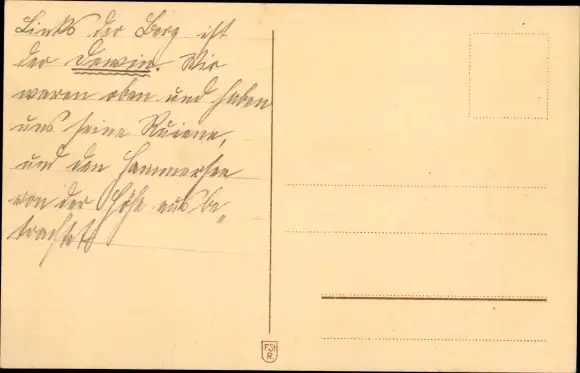 Links der Berg ist
der Dewin. Wir
waren oben und haben
uns seine Ruiene,
und den Hammersee
von der Höhe aus be„
trachtet.